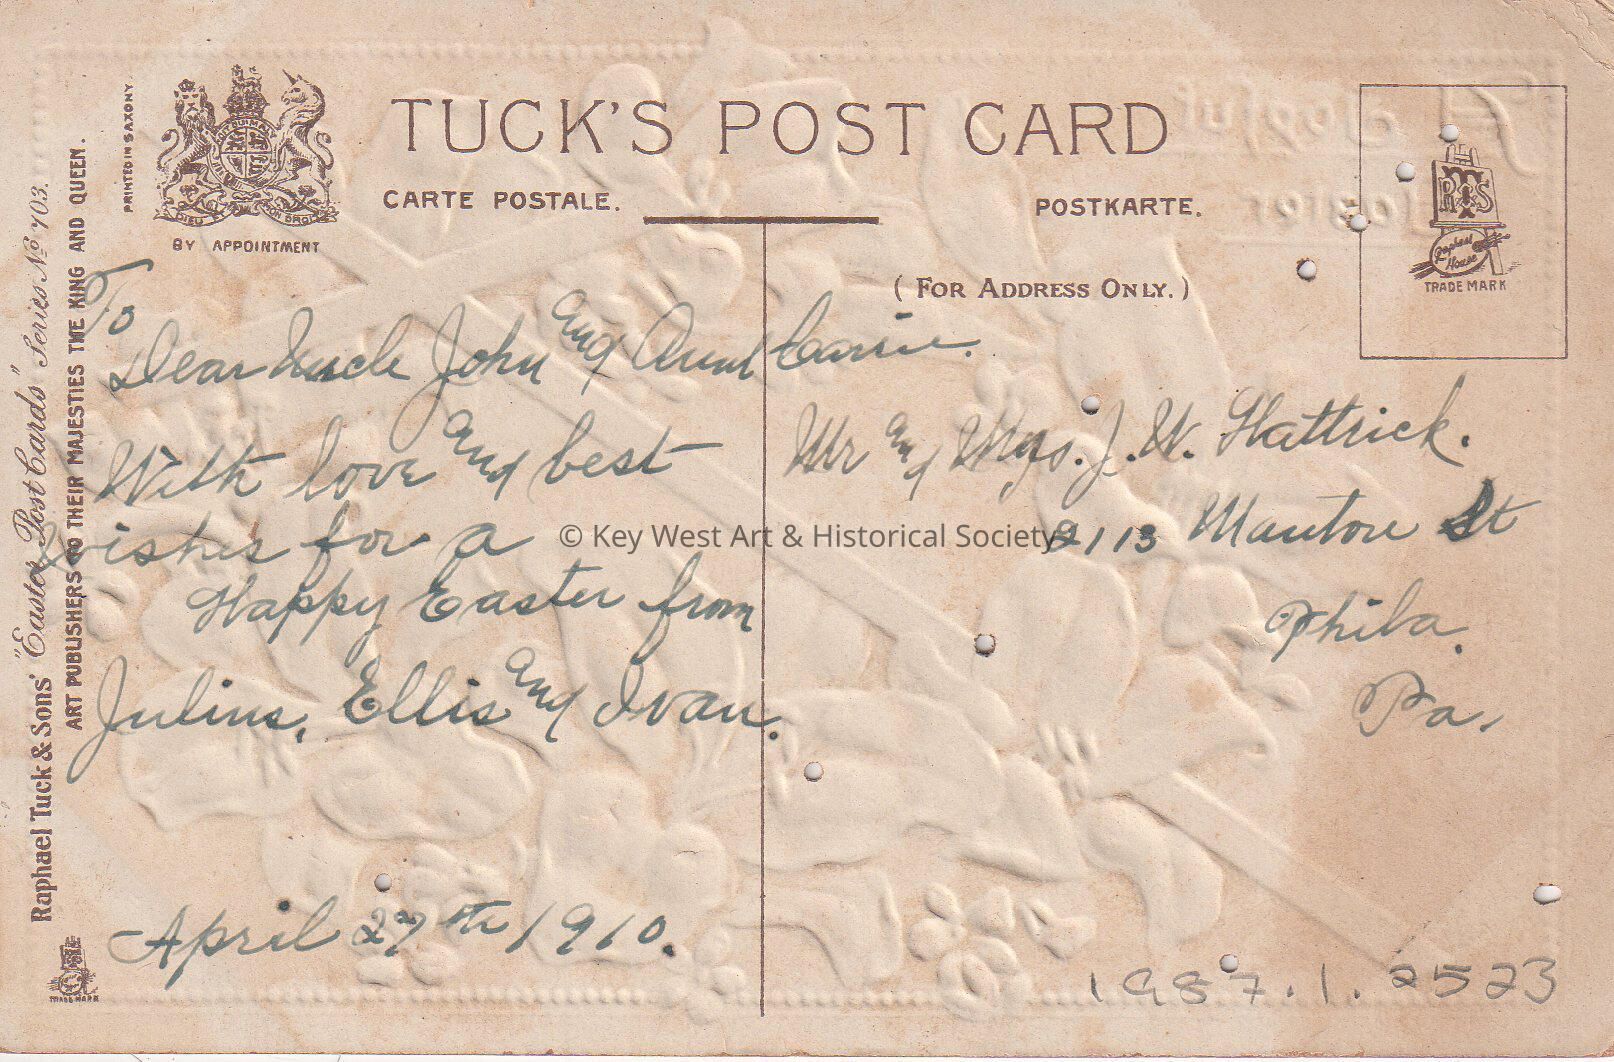 TUCK'S POST CARD
CARTE POSTALE.
POSTKARTE.
(FOR ADDRESS ONLY.)
BY APPOINTMENT
PRINTED IN SAXONY.
Raphael Tuck & Sons' "Easter Post Cards" Series No 703.
ART PUBLISHERS TO THEIR MAJESTIES THE KING AND QUEEN.
TRADE MARK
RTS
Raphael
House
TRADE MARK
To
Dear Uncle John and Aunt Carrie.
With love and best
wishes for a
Happy Easter from
Julius, Ellis and Ivan.
April 27th 1910.
Mr and Mrs. J. W. Hattrick.
2113 Mautore St
Phila.
Pa.
1987.1.2523
© Key West Art & Historical Society